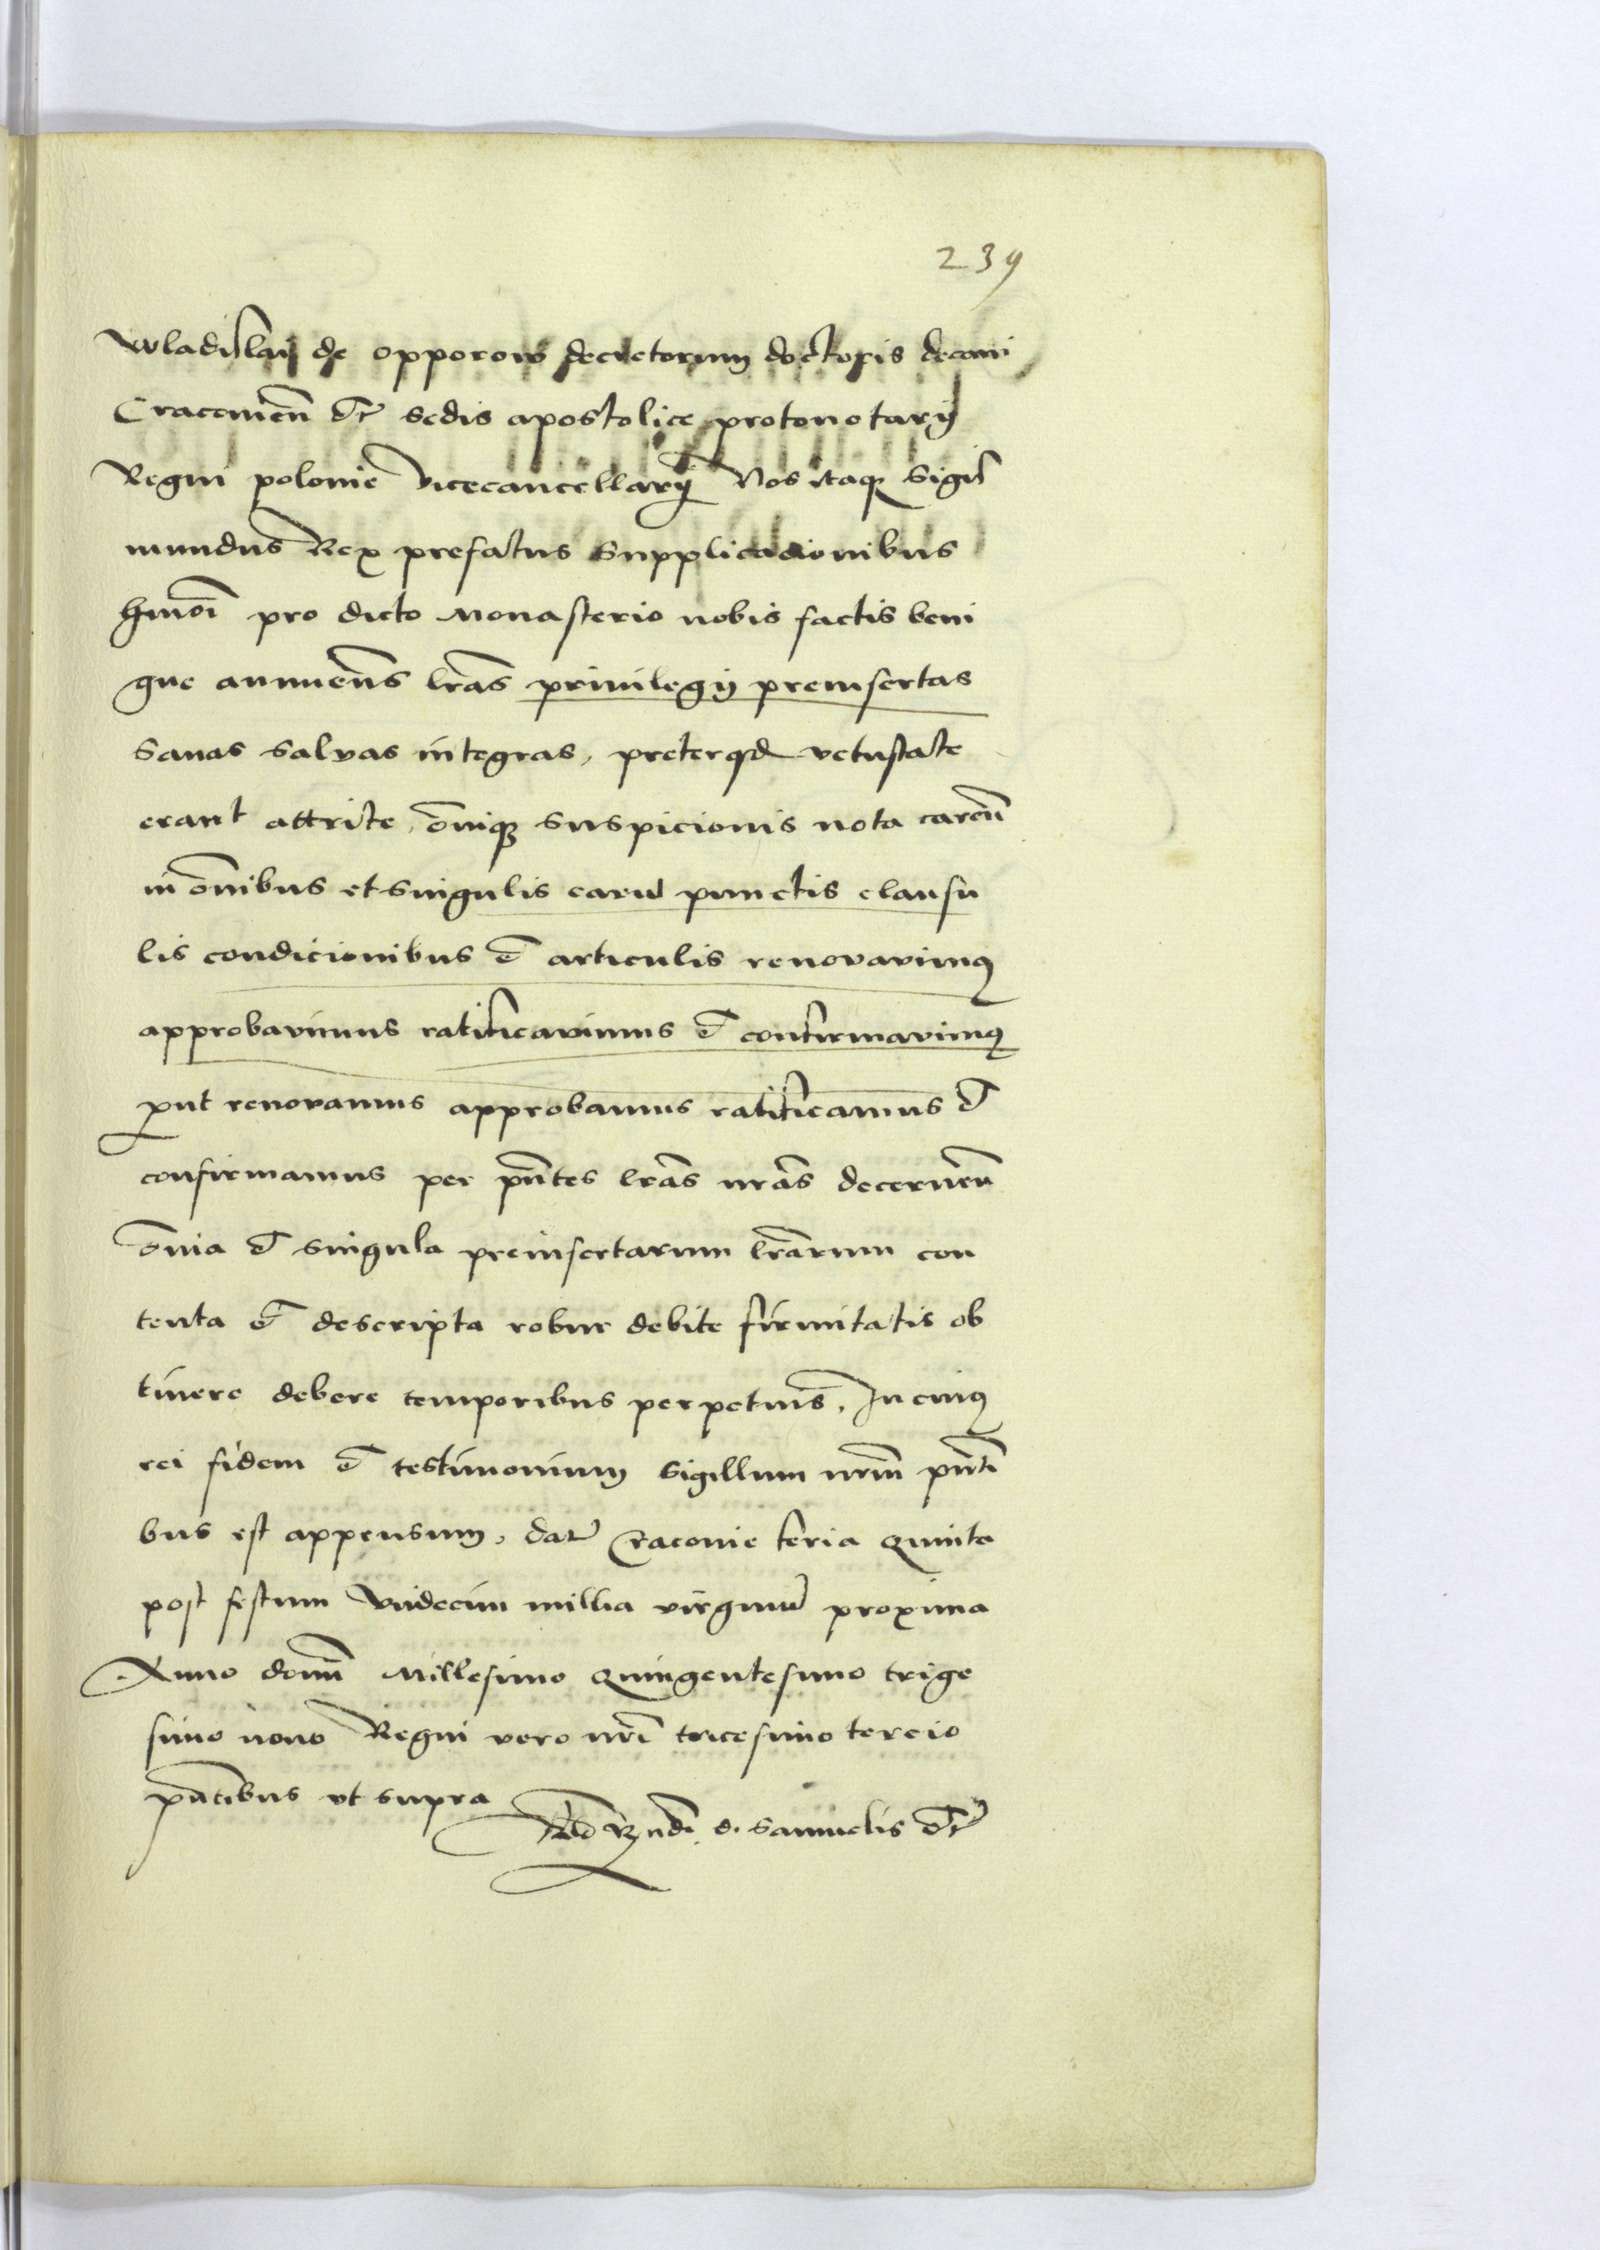 239
Wladislai de opporow decretorum doctoris decani
Cracouien̄ Etc̄ sedis apostolice protonotarÿ
Regni polonie vicecancellarÿ Nos itaq; Sigis
mundus Rex prefatus Supplicacionibus
hmōi pro dicto Monasterio nobis factis beni
gne annuen̄s lr̄as priuilegÿ preinsertas
Sanas saluas integras, preterq̄d vetustate
erant attrite, ōniq; suspicionis nota caren̄
in ōnibus et singulis earū punctis clausu
lis condicionibus et articulis renovavimq
approbavimus ratificavimus et confirmavimq
put renovamus approbamus ratificamus et
confirmamus per pn̄tes lr̄as nr̄as decernen̄
ōnia et singula preinsertarum lr̄arum con
tenta et descripta robur debite firmitatis ob
tinere debere temporibus perpetuis. In cuiq
rei fidem et testimonium Sigillum nr̄m pn̄ti
bus est appensum. dat̄ Cracouie feria quinta
post festum Vndecim millia virginū proxima
Anno domī Millesimo quingentesimo trige
simo nono Regni vero nr̄i tricesimo tercio
pn̄tibus vt supra
R̄ndi d. Samuelis Etc̄